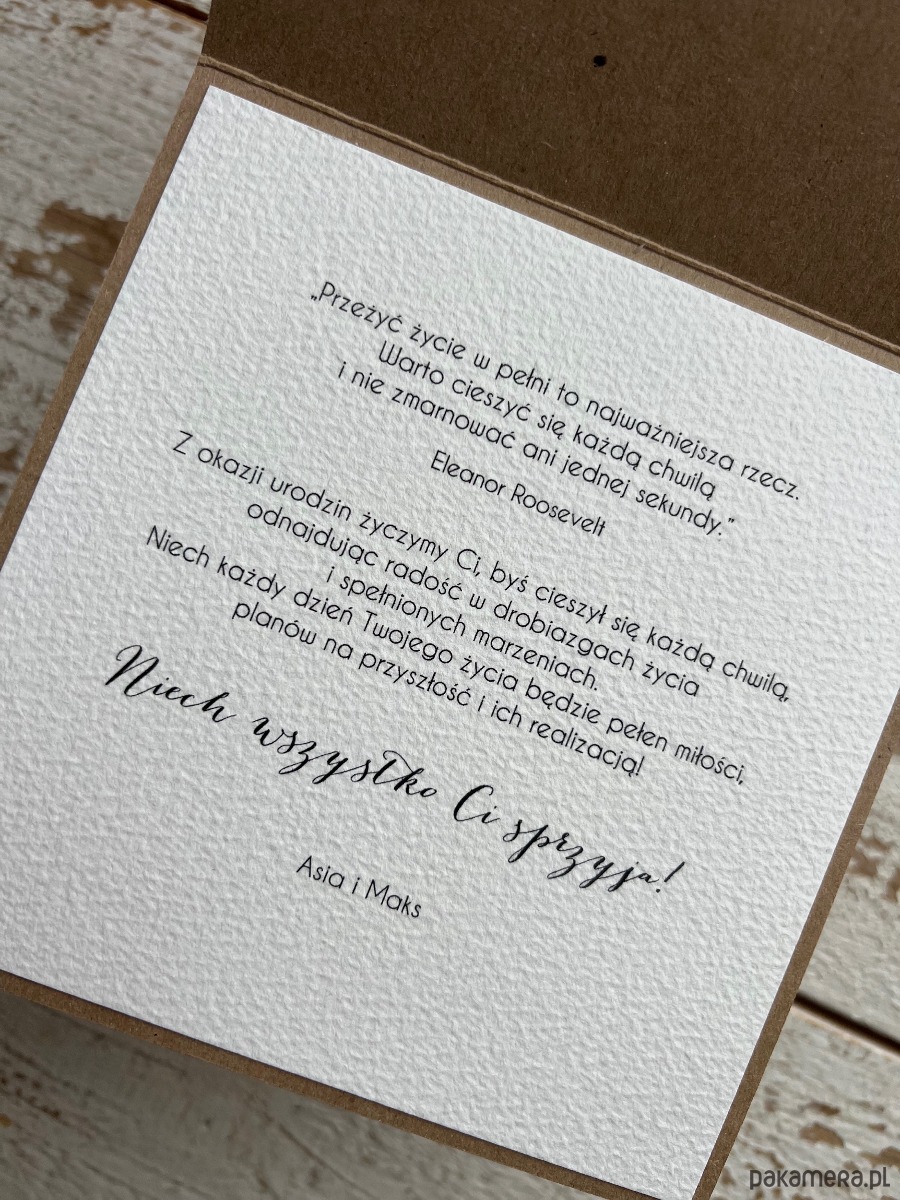 „Przeżyć życie w pełni to najważniejsza rzecz.
Warto cieszyć się każdą chwilą
i nie zmarnować ani jednej sekundy."
Eleanor Roosevelt
Z okazji urodzin życzymy Ci, byś cieszył się każdą chwilą,
odnajdując radość w drobiazgach życia
i spełnionych marzeniach.
Niech każdy dzień Twojego życia będzie pełen miłości,
planów na przyszłość i ich realizacją!
Niech wszystko Ci sprzyja!
Asia i Maks
pakamera.pl